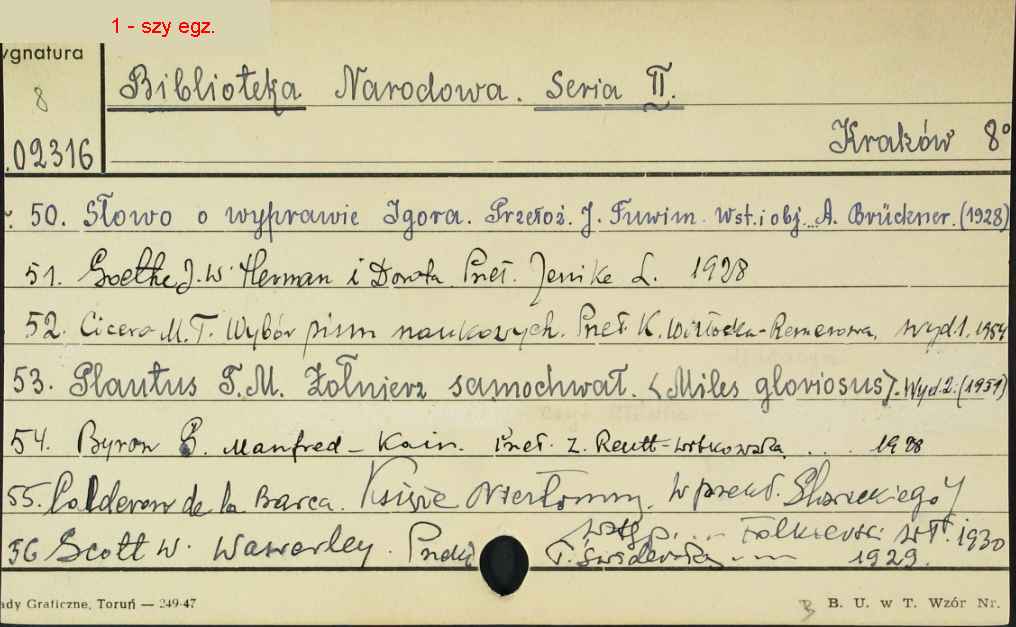 1 - szy egz.
ygnatura
8
.02316
Biblioteka Narodowa. Seria II.
Kraków 8°
50. Słowo o wyprawie Igora. Przełoż. J. Tuwim. Wst. i obj. A. Brückner. (1928)
51. Goethe J. W. Herman i Dorota. Przeł. Jenike L. 1928
52. Cicero M. T. Wybór pism naukowych. Przeł. K. Wisłocka-Remerowa, wyd 1. 1954
53. Plautus T. M. Żołnierz samochwał. (Miles gloriosus). Wyd. 2. (1951)
54. Byron G. Manfred - Kain. Przeł. Z. Reutt-Witkowska ... 1928
55. Calderon de la Barca. Książe Niezłomny. W przekł. Słowackiego
Wstęp ... Folkierski Wł. 1930
56 Scott W. Waverley. Przekł T. Świderska --- 1929.
ady Graficzne, Toruń — 249-47
B. U. w T. Wzór Nr.